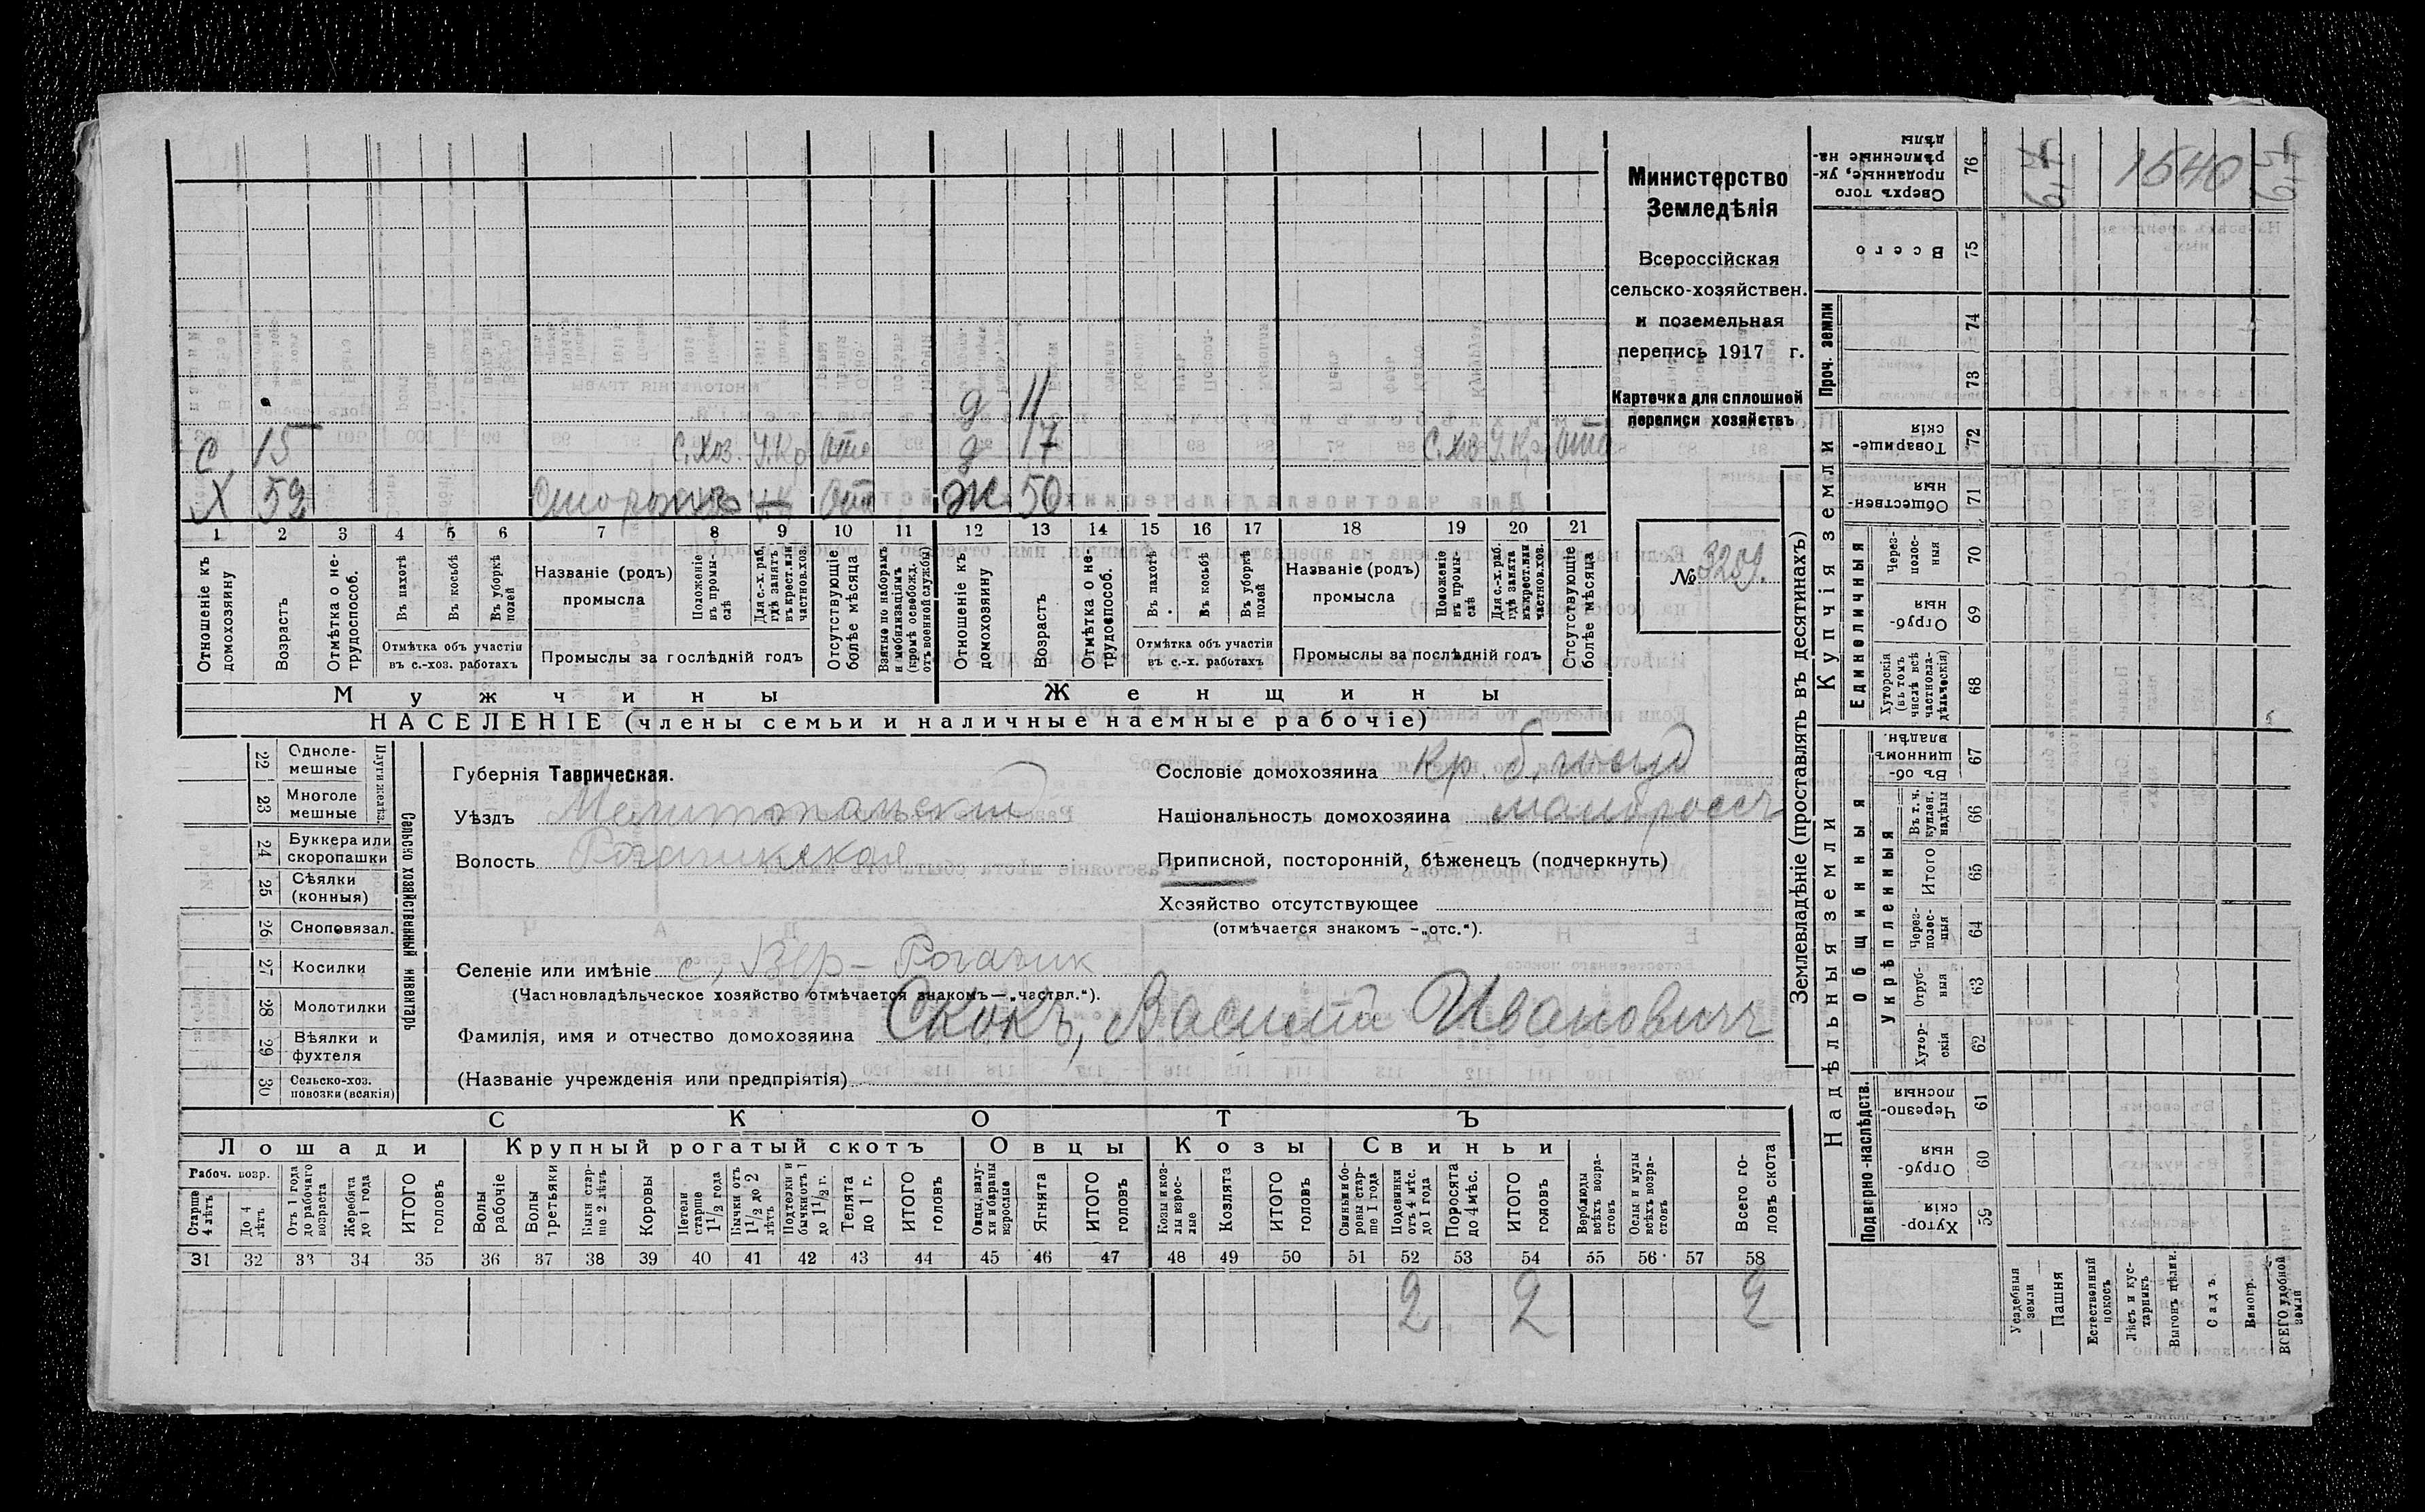 Министерство
Земледѣлія
Всероссійская
сельско-хозяйствен.
и поземельная
перепись 1917 г.
Карточка для сплошной
переписи хозяйствъ
№ 3259.
д 11
С. 15 С.хоз. Ч.Кр д 17 С.хоз Ч.Кр
Х 52 Ж 50
1 2 3 4 5 6 7 8 9 10 11 12 13 14 15 16 17 18 19 20 21
Отношеніе къ домохозяину
Возрастъ
Отмѣтка о не-трудоспособ.
Въ пахотѣ
Въ косьбѣ
Въ уборкѣ полей
Отмѣтка объ участіи
въ с.-хоз. работахъ
Названіе (родъ)
промысла
Положеніе въ промы-слѣ
Для с.-х. раб. гдѣ занятъ въ крест. или частнов. хоз.
Промыслы за послѣдній годъ
Отсутствующіе болѣе мѣсяца
Взятые по наборамъ и мобилизаціямъ (кромѣ освобожд. отъ военной службы)
Отношеніе къ домохозяину
Возрастъ
Отмѣтка о не-трудоспособ.
Въ пахотѣ
Въ косьбѣ
Въ уборкѣ полей
Отмѣтка объ участіи
въ с.-х. работахъ
Названіе (родъ)
промысла
Положеніе въ промы-слѣ
Для с.-х. раб. гдѣ занята въ крест. или частнов. хоз.
Промыслы за послѣдній годъ
Отсутствующіе болѣе мѣсяца
Мужчины Женщины
НАСЕЛЕНІЕ (члены семьи и наличные наемные рабочіе)
Сельско хозяйственный инвентарь
Плуги желѣз.
22 Одноле-мешные
23 Многоле мешные
24 Буккера или скоропашки
25 Сѣялки (конныя)
26 Сноповязал.
27 Косилки
28 Молотилки
29 Вѣялки и фухтеля
30 Сельско-хоз. повозки (всякія)
Губернія Таврическая.
Уѣздъ Мелитопольскій
Волость Рогачикская
Сословіе домохозяина Кр.
Національность домохозяина малороссъ
Приписной, посторонній, бѣженецъ (подчеркнуть)
Хозяйство отсутствующее
(отмѣчается знакомъ –„отс.“).
Селеніе или имѣніе с. Вер-Рогачик
(Частновладѣльческое хозяйство отмѣчается знакомъ—„частвл.“).
Фамилія, имя и отчество домохозяина Скокъ, Василій Ивановичъ
(Названіе учрежденія или предпріятія)
СКОТЪ
Лошади Крупный рогатый скотъ Овцы Козы Свиньи
Рабоч. возр.
Старше 4 лѣтъ
До 4 лѣтъ
Отъ 1 года до рабочаго возраста
Жеребята до 1 года
ИТОГО головъ
Волы рабочіе
Волы третьяки
Быки стар-ше 2 лѣтъ
Коровы
Нетели старше 1 1/2 года
Бычки отъ 1 1/2 до 2 лѣтъ
Подтелки и бычки отъ 1 до 1 1/2 г.
Телята до 1 г.
ИТОГО головъ
Овцы, валу-хи и бараны взрослые
Ягнята
ИТОГО головъ
Козы и коз-лы взрос-лые
Козлята
ИТОГО головъ
Свиньи и бо-ровы стар-ше 1 года
Подсвинки отъ 4 мѣс. до 1 года
Поросята до 4 мѣс.
ИТОГО головъ
Верблюды всѣхъ возра-стовъ
Ослы и мулы всѣхъ возра-стовъ
Всего го-ловъ скота
31 32 33 34 35 36 37 38 39 40 41 42 43 44 45 46 47 48 49 50 51 52 53 54 55 56 57 58
2 2 2
Землевладѣніе (проставлять въ десятинахъ)
Надѣльныя земли
Купчія земли
Проч. земли
Подворно-наслѣдств.
Общинныя
Укрѣпленныя
Единоличныя
Сверхъ того проданные, ук-рѣпленные на-дѣлы 76
Всего 75
74
73
Товарище-скія 72
Обществен-ныя 71
Через-полос-ныя 70
Отруб-ныя 69
Хуторскія (въ томъ числѣ всѣ частновла-дѣльческія) 68
Въ об-щинномъ владѣн. 67
Въ т. ч. куплен. надѣлы 66
Итого 65
Через-полос-ныя 64
Отруб-ныя 63
Хутор-скія 62
Черезпо-лосныя 61
Отруб-ныя 60
Хутор-скія 59
Усадебныя земли
Пашня
Естественный покосъ
Лѣсъ и кус-тарникъ
Выгонъ цѣлин.
Садъ.
Виногр.
ВСЕГО удобной земли
1540